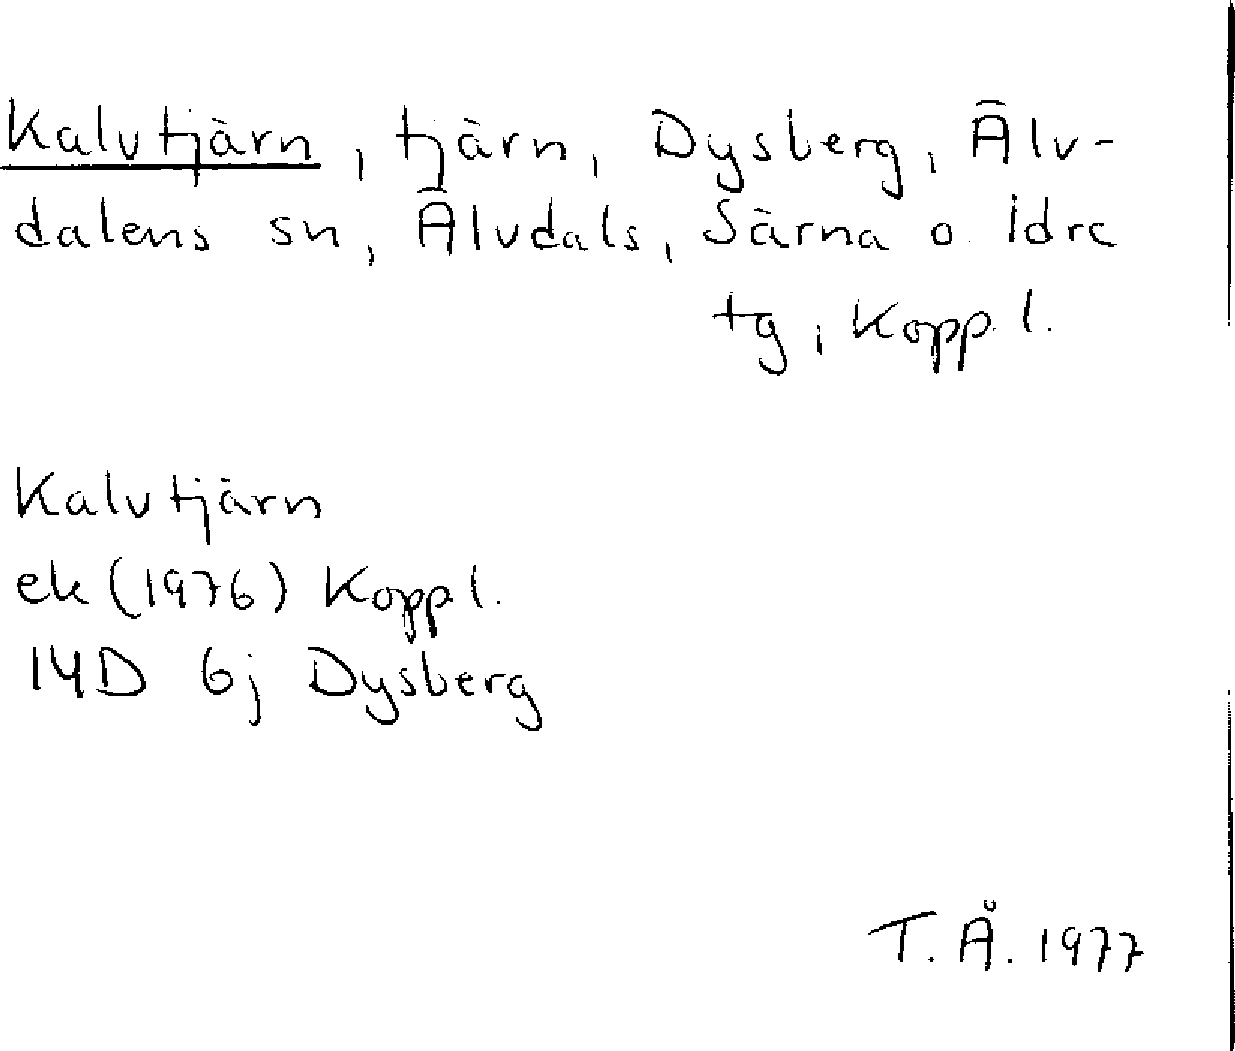 Kalvtjärn, tjärn, Dysberg, Älv-
dalens sn, Älvdals, Särna o. Idre
tg, Kopp. l.
Kalvtjärn
ek (1976) Kopp l.
14D 6j Dysberg
T. Å. 1977